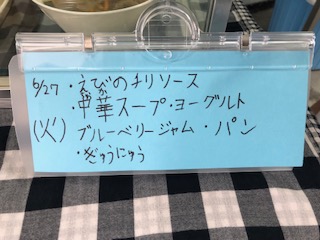 6/27・えびのチリソース
・中華スープ・ヨーグルト
(火)ブルーベリージャム・パン
・ぎゅうにゅう